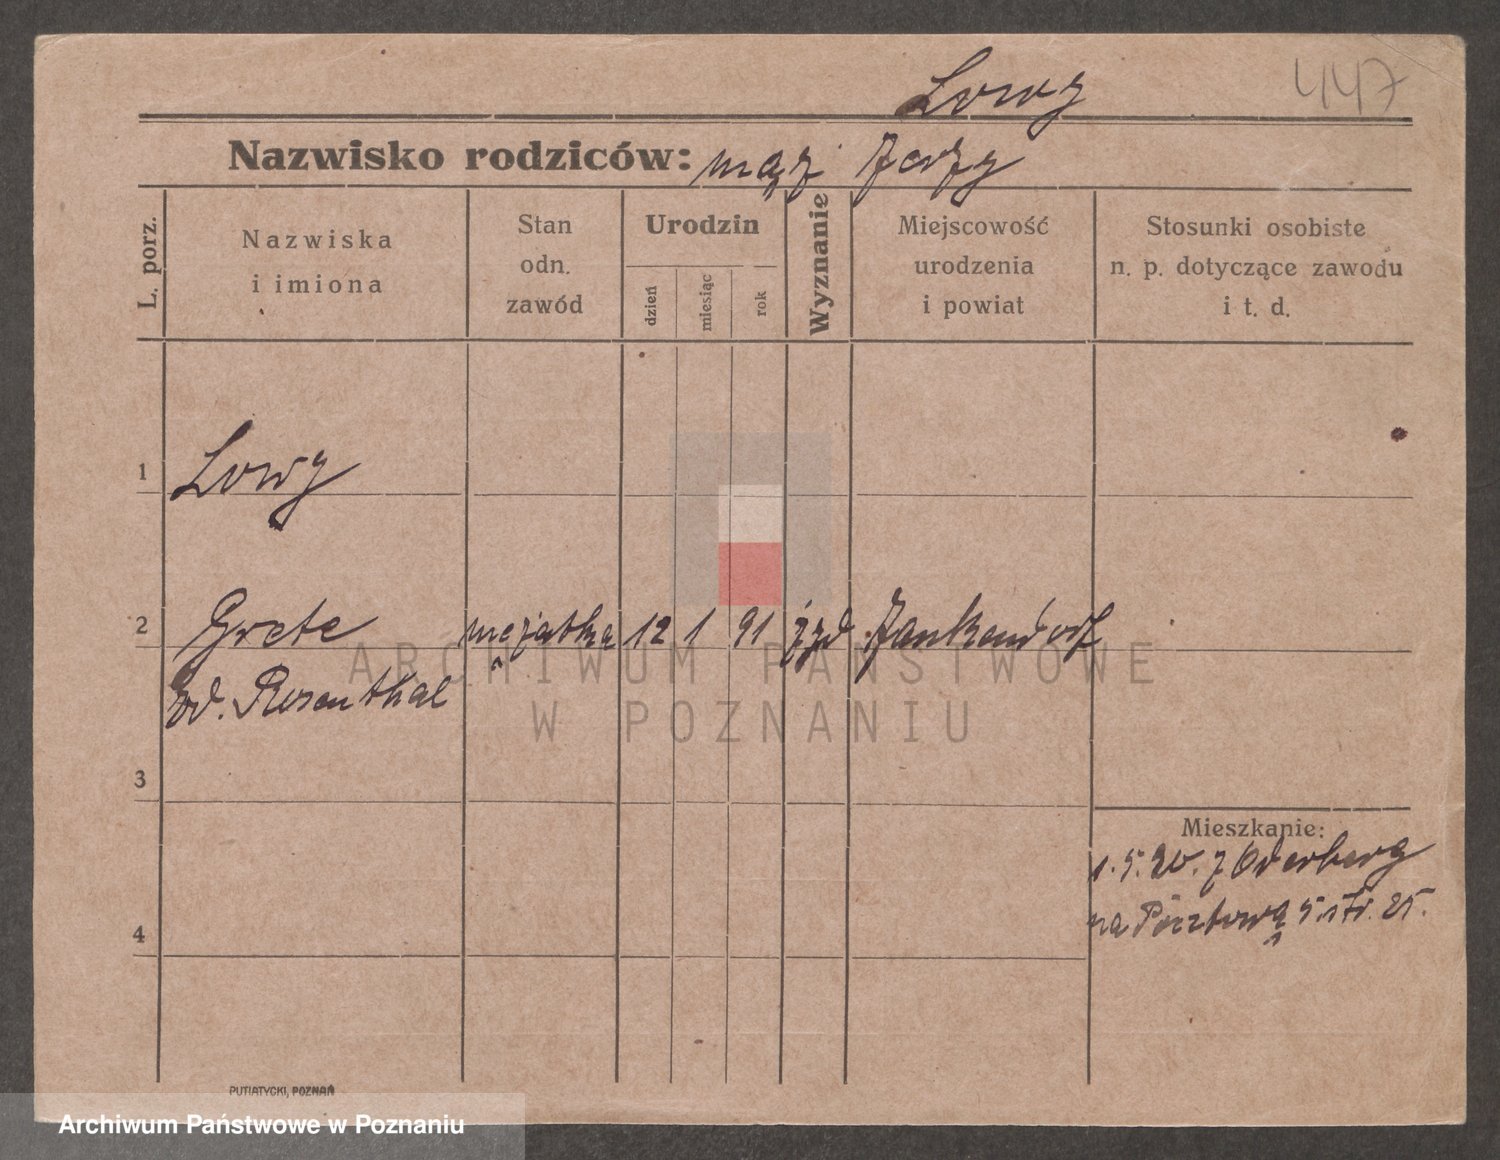 Lowy 447
Nazwisko rodziców: mąż Jerzy
L. porz.
Nazwiska
i imiona
Stan
odn.
zawód
Urodzin
dzień
miesiąc
rok
Wyznanie
Miejscowość
urodzenia
i powiat
Stosunki osobiste
n. p. dotyczące zawodu
i t. d.
1 Lowy
2 Grete mężatka 12 1 91 żyd Jankendorf
zd. Rosenthal
ARCHIWUM PAŃSTWOWE
W POZNANIU
3
Mieszkanie:
1.5.20. z Oderberg
na Pocztową 5 str. 25.
4
PUTIATYCKI, POZNAŃ
Archiwum Państwowe w Poznaniu